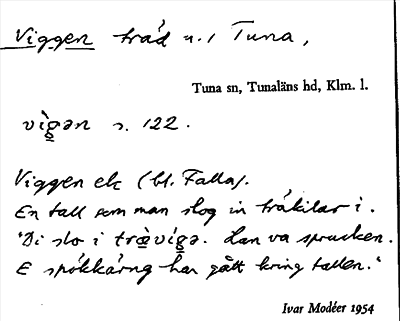 Viggen träd n. i Tuna,
Tuna sn, Tunaläns hd, Klm. l.
vìgən s. 122.
Viggen ek (bl. Falla).
En tall som man slog in träkilar i.
"Di slo i trävigə. Han va sprucken.
E spökkärng har gått kring tallen."
Ivar Modéer 1954